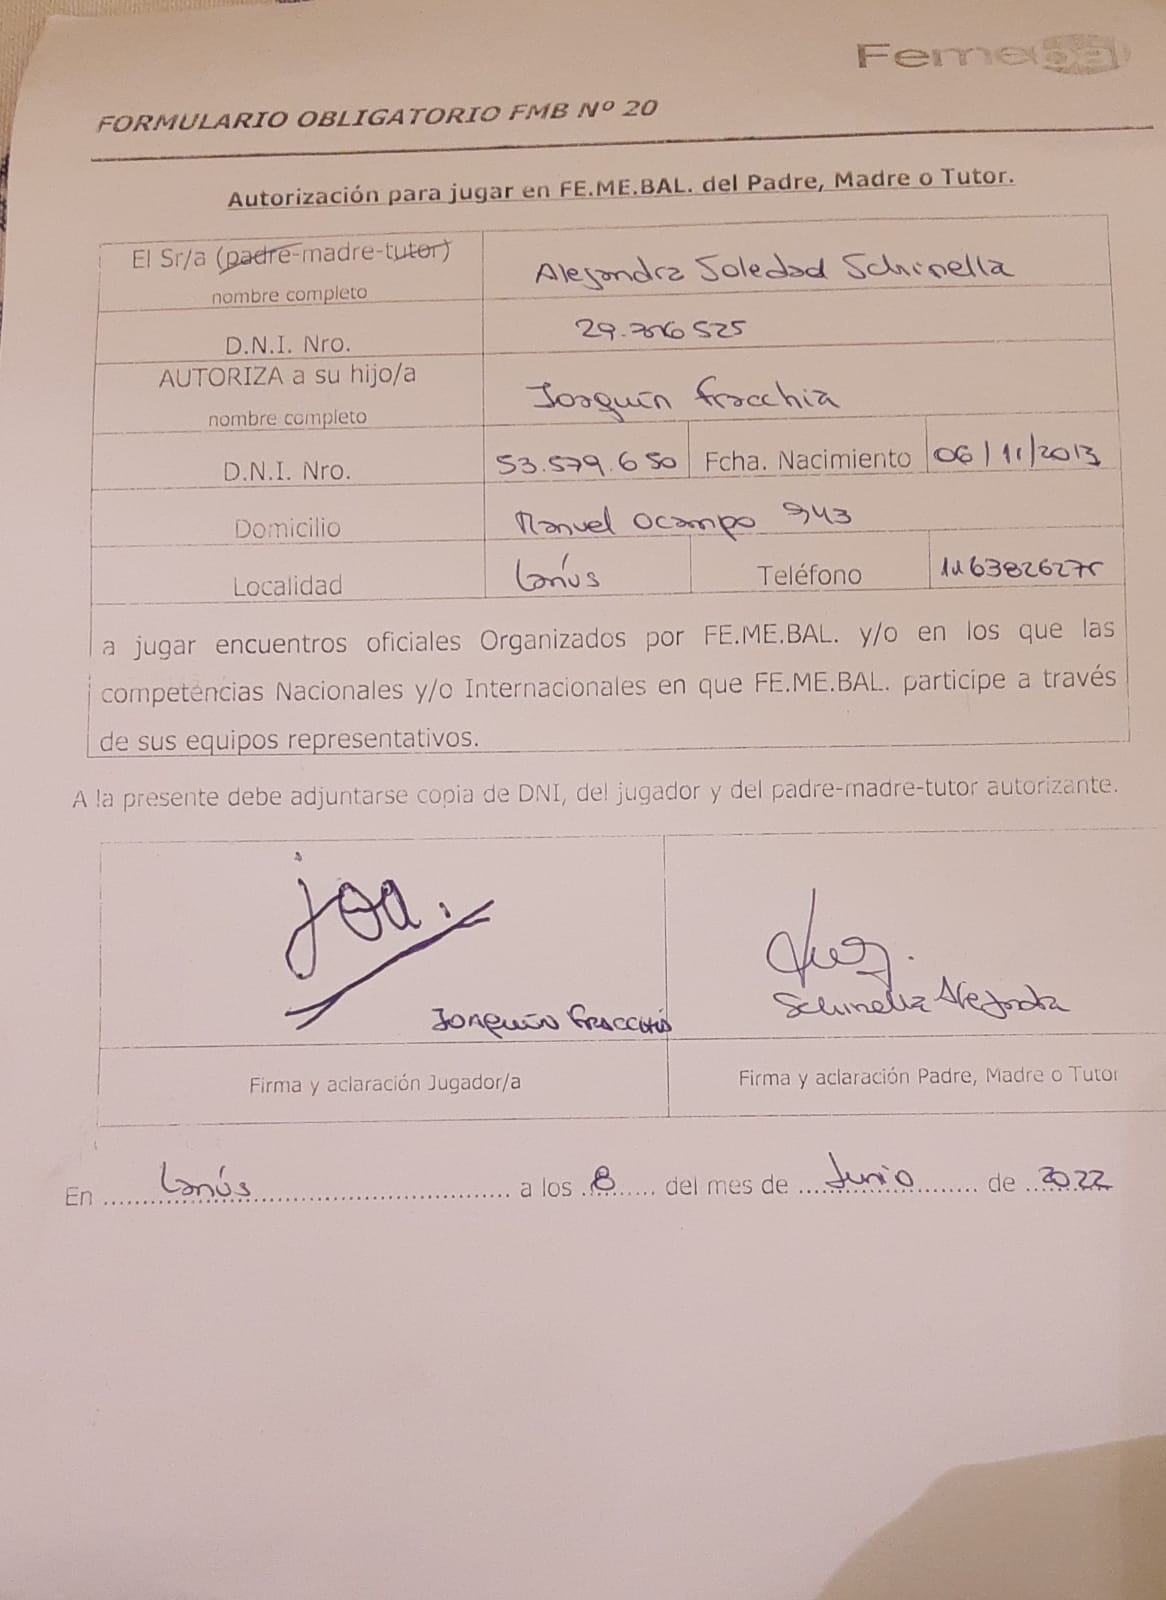 Femebal
FORMULARIO OBLIGATORIO FMB Nº 20
Autorización para jugar en FE.ME.BAL. del Padre, Madre o Tutor.
El Sr/a (padre-madre-tutor) Alejandra Soledad Schinella
nombre completo
D.N.I. Nro. 29.706525
AUTORIZA a su hijo/a Joaquín Fracchia
nombre completo
D.N.I. Nro. 53.579.650 Fcha. Nacimiento 06/11/2013
Domicilio Manuel Ocampo 943
Localidad Lanús Teléfono 1163826275
a jugar encuentros oficiales Organizados por FE.ME.BAL. y/o en los que las
competencias Nacionales y/o Internacionales en que FE.ME.BAL. participe a través
de sus equipos representativos.
A la presente debe adjuntarse copia de DNI, del jugador y del padre-madre-tutor autorizante.
joa.
Joaquín Fracchia Schinella Alejandra
Firma y aclaración Jugador/a Firma y aclaración Padre, Madre o Tutor
En Lanús a los 8 del mes de Junio de 2022